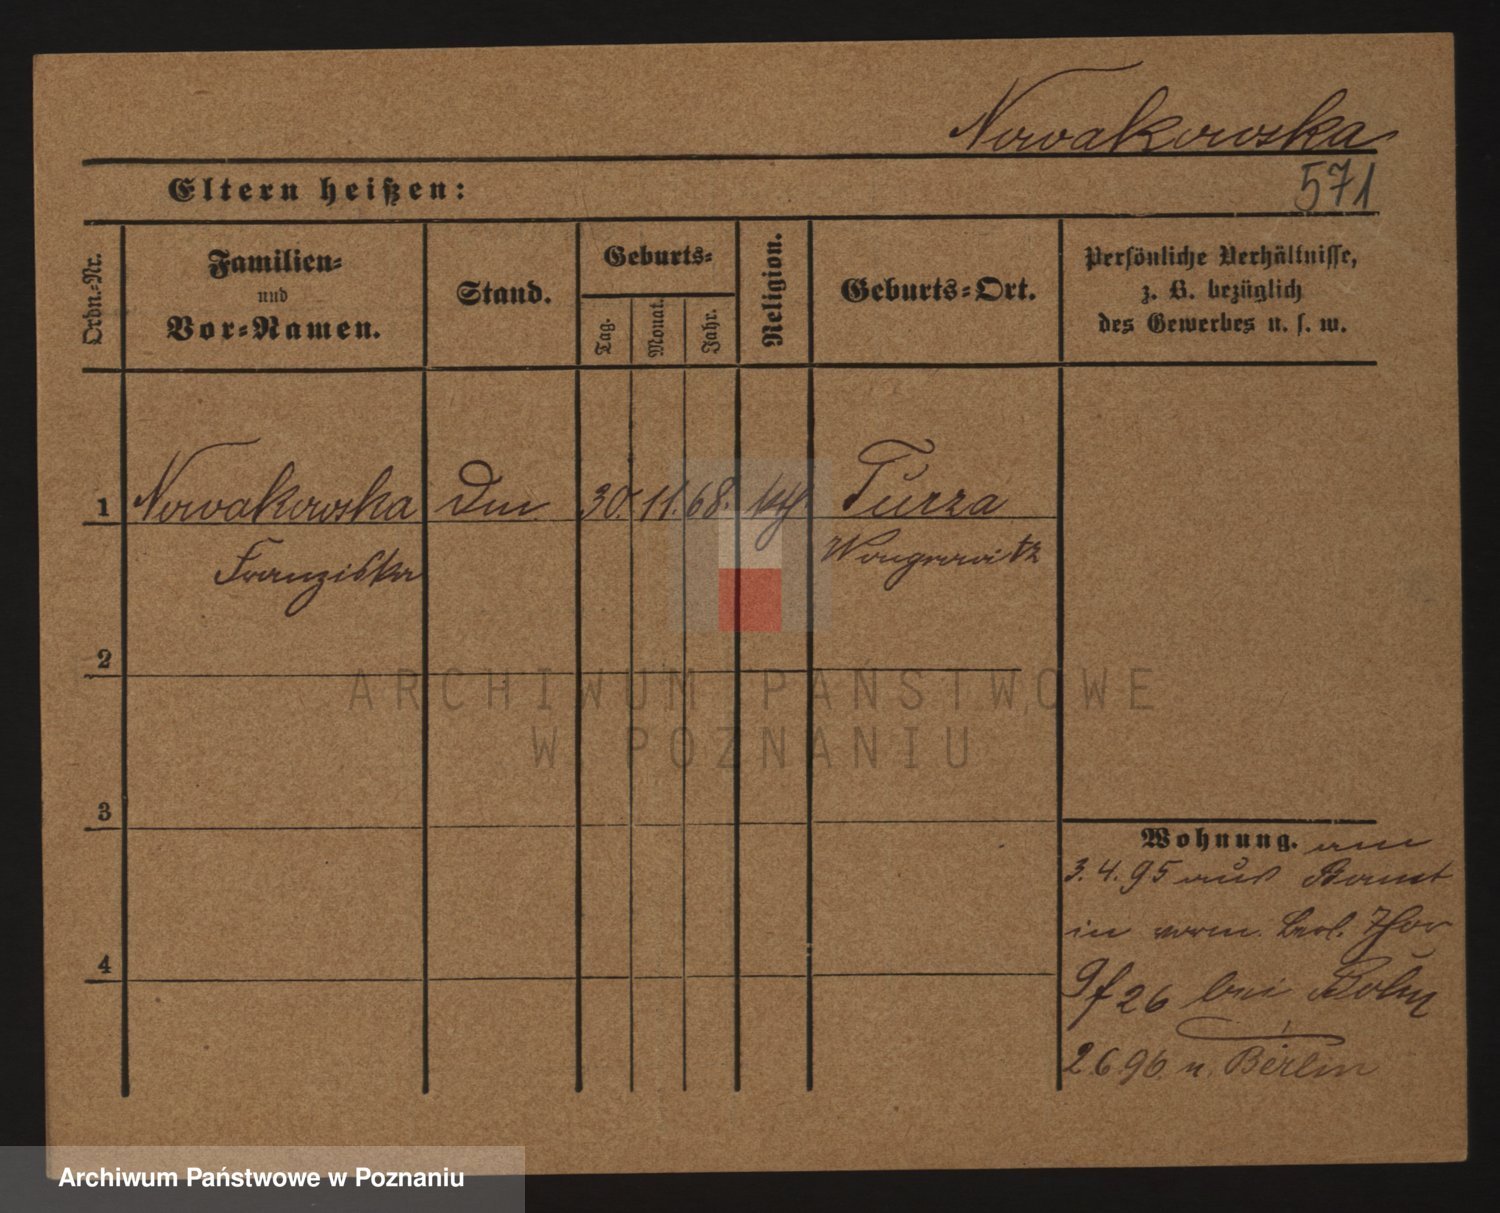 Nowakowska
Eltern heißen:
571
Ordn.-Nr.
Familien-
und
Vor-Namen.
Stand.
Geburts-
Tag.
Monat.
Jahr.
Religion.
Geburts-Ort.
Persönliche Verhältnisse,
z. B. bezüglich
des Gewerbes u. s. w.
1
Nowakowska
30. 11. 68. kth
Turza
Franziska
Wongrowitz
2
3
4
Wohnung. am
3. 4. 95 aus
in vorm. Berl. Thor
26 bei
2.6.96. n. Berlin
ARCHIWUM PAŃSTWOWE
W POZNANIU
Archiwum Państwowe w Poznaniu